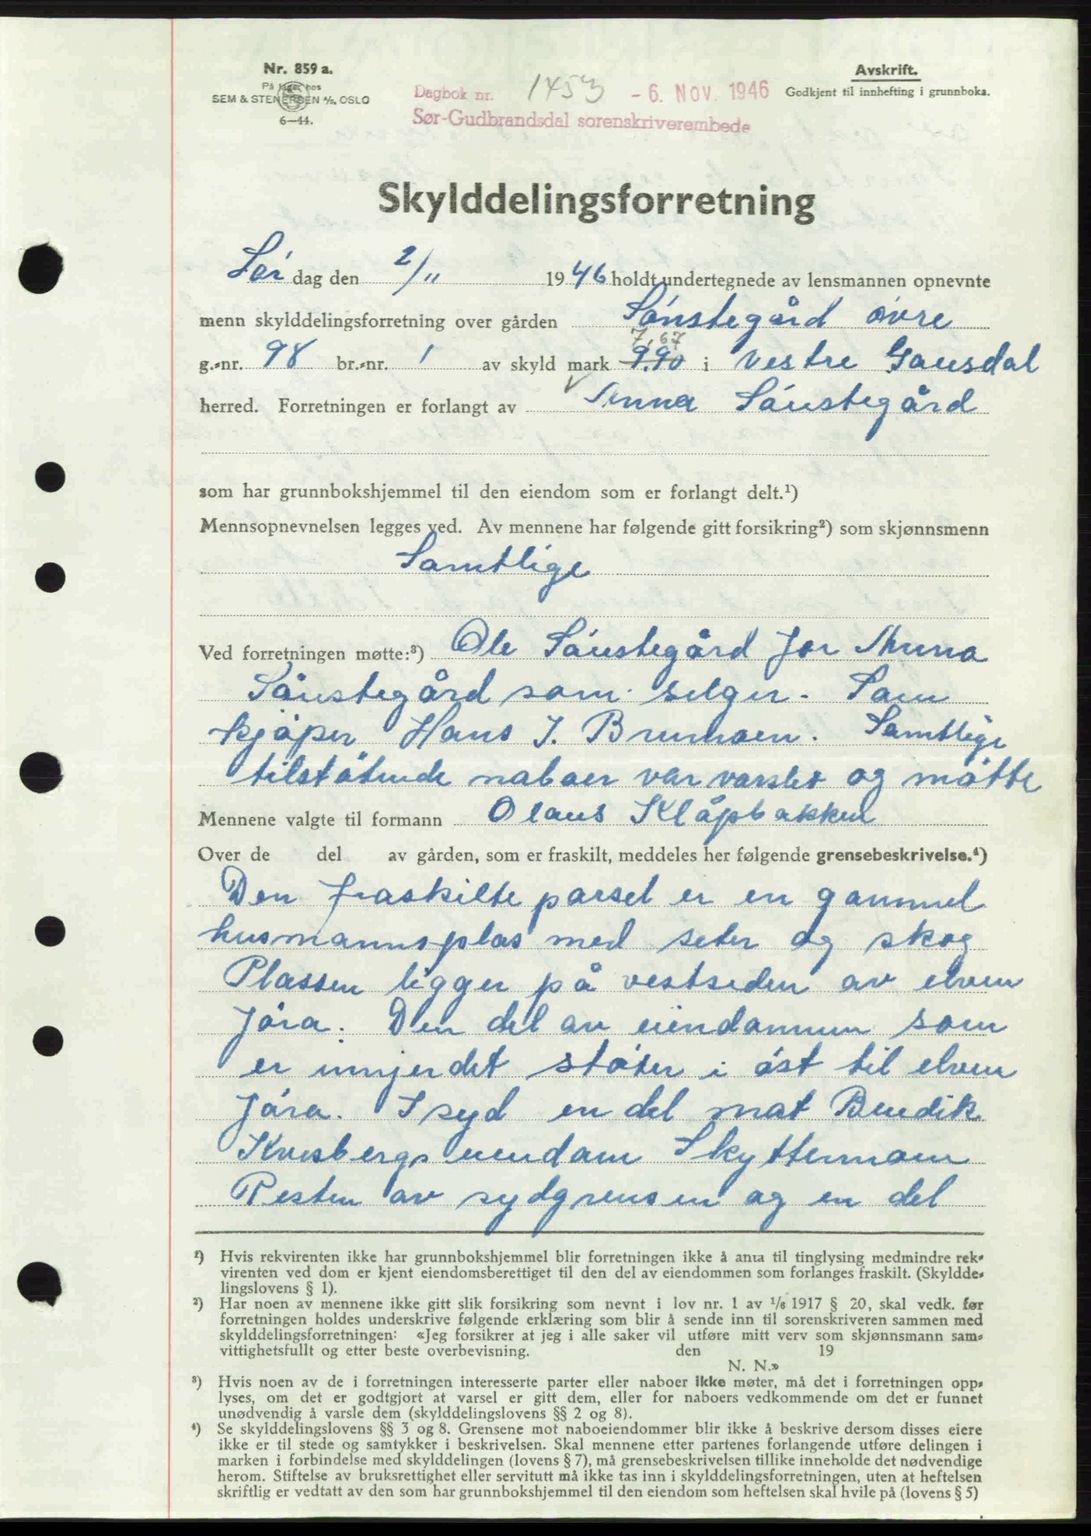 Nr. 859 a.
På lager hos
SEM & STENERSEN A/S, OSLO
6—44.
Dagbok nr. 1453 - 6. NOV. 1946
Sør-Gudbrandsdal sorenskriverembede
Avskrift.
Godkjent til innhefting i grunnboka.
Skylddelingsforretning
Lør dag den 2/11 1946 holdt undertegnede av lensmannen opnevnte
menn skylddelingsforretning over gården Sønstegård øvre
7,67
g.-nr. 98 br.-nr. 1 av skyld mark 9.90 i Vestre Gausdal
herred. Forretningen er forlangt av Anna Sønstegård
som har grunnbokshjemmel til den eiendom som er forlangt delt.¹)
Mennsopnevnelsen legges ved. Av mennene har følgende gitt forsikring²) som skjønnsmenn
Samtlige
Ved forretningen møtte:³) Ole Sønstegård for Anna
Sønstegård som selger. Som
kjøper Hans J. Brunhoen. Samtlige
tilstøtende naboer var varslet og møtte
Mennene valgte til formann Olaus Klåpbakken
Over de del av gården, som er fraskilt, meddeles her følgende grensebeskrivelse.⁴)
Den fraskilte parsel er en gammel
husmannsplas med seter og skog
Plassen ligger på vestsiden av elven
Jøra. Den del av eiendommen som
er innjerdet støter i øst til elven
Jøra. I syd en del mot Bendik
Kvisbergs eiendom Skyttermoen
Resten av sydgrensen og en del
¹) Hvis rekvirenten ikke har grunnbokshjemmel blir forretningen ikke å anta til tinglysing medmindre rek-
virenten ved dom er kjent eiendomsberettiget til den del av eiendommen som forlanges fraskilt. (Skyldde-
lingslovens § 1).
²) Har noen av mennene ikke gitt slik forsikring som nevnt i lov nr. 1 av 1/6 1917 § 20, skal vedk. før
forretningen holdes underskrive følgende erklæring som blir å sende inn til sorenskriveren sammen med
skylddelingsforretningen: «Jeg forsikrer at jeg i alle saker vil utføre mitt verv som skjønnsmann sam-
vittighetsfullt og etter beste overbevisning. den 19
N. N.»
³) Hvis noen av de i forretningen interesserte parter eller naboer ikke møter, må det i forretningen opp-
lyses, om det er godtgjort at varsel er gitt dem, eller for naboers vedkommende om det er funnet
unødvendig å varsle dem (skylddelingslovens §§ 2 og 8).
⁴) Se skylddelingslovens §§ 3 og 8. Grensene mot naboeiendommer blir ikke å beskrive dersom disses eiere
ikke er til stede og samtykker i beskrivelsen. Skal mennene etter partenes forlangende utføre delingen i
marken i forbindelse med skylddelingen (lovens § 7), må grensebeskrivelsen tillike inneholde det nødvendige
herom. Stiftelse av bruksrettighet eller servitutt må ikke tas inn i skylddelingsforretningen, uten at heftelsen
skriftlig er vedtatt av den som har grunnbokshjemmel til den eiendom som heftelsen skal hvile på (lovens § 5)